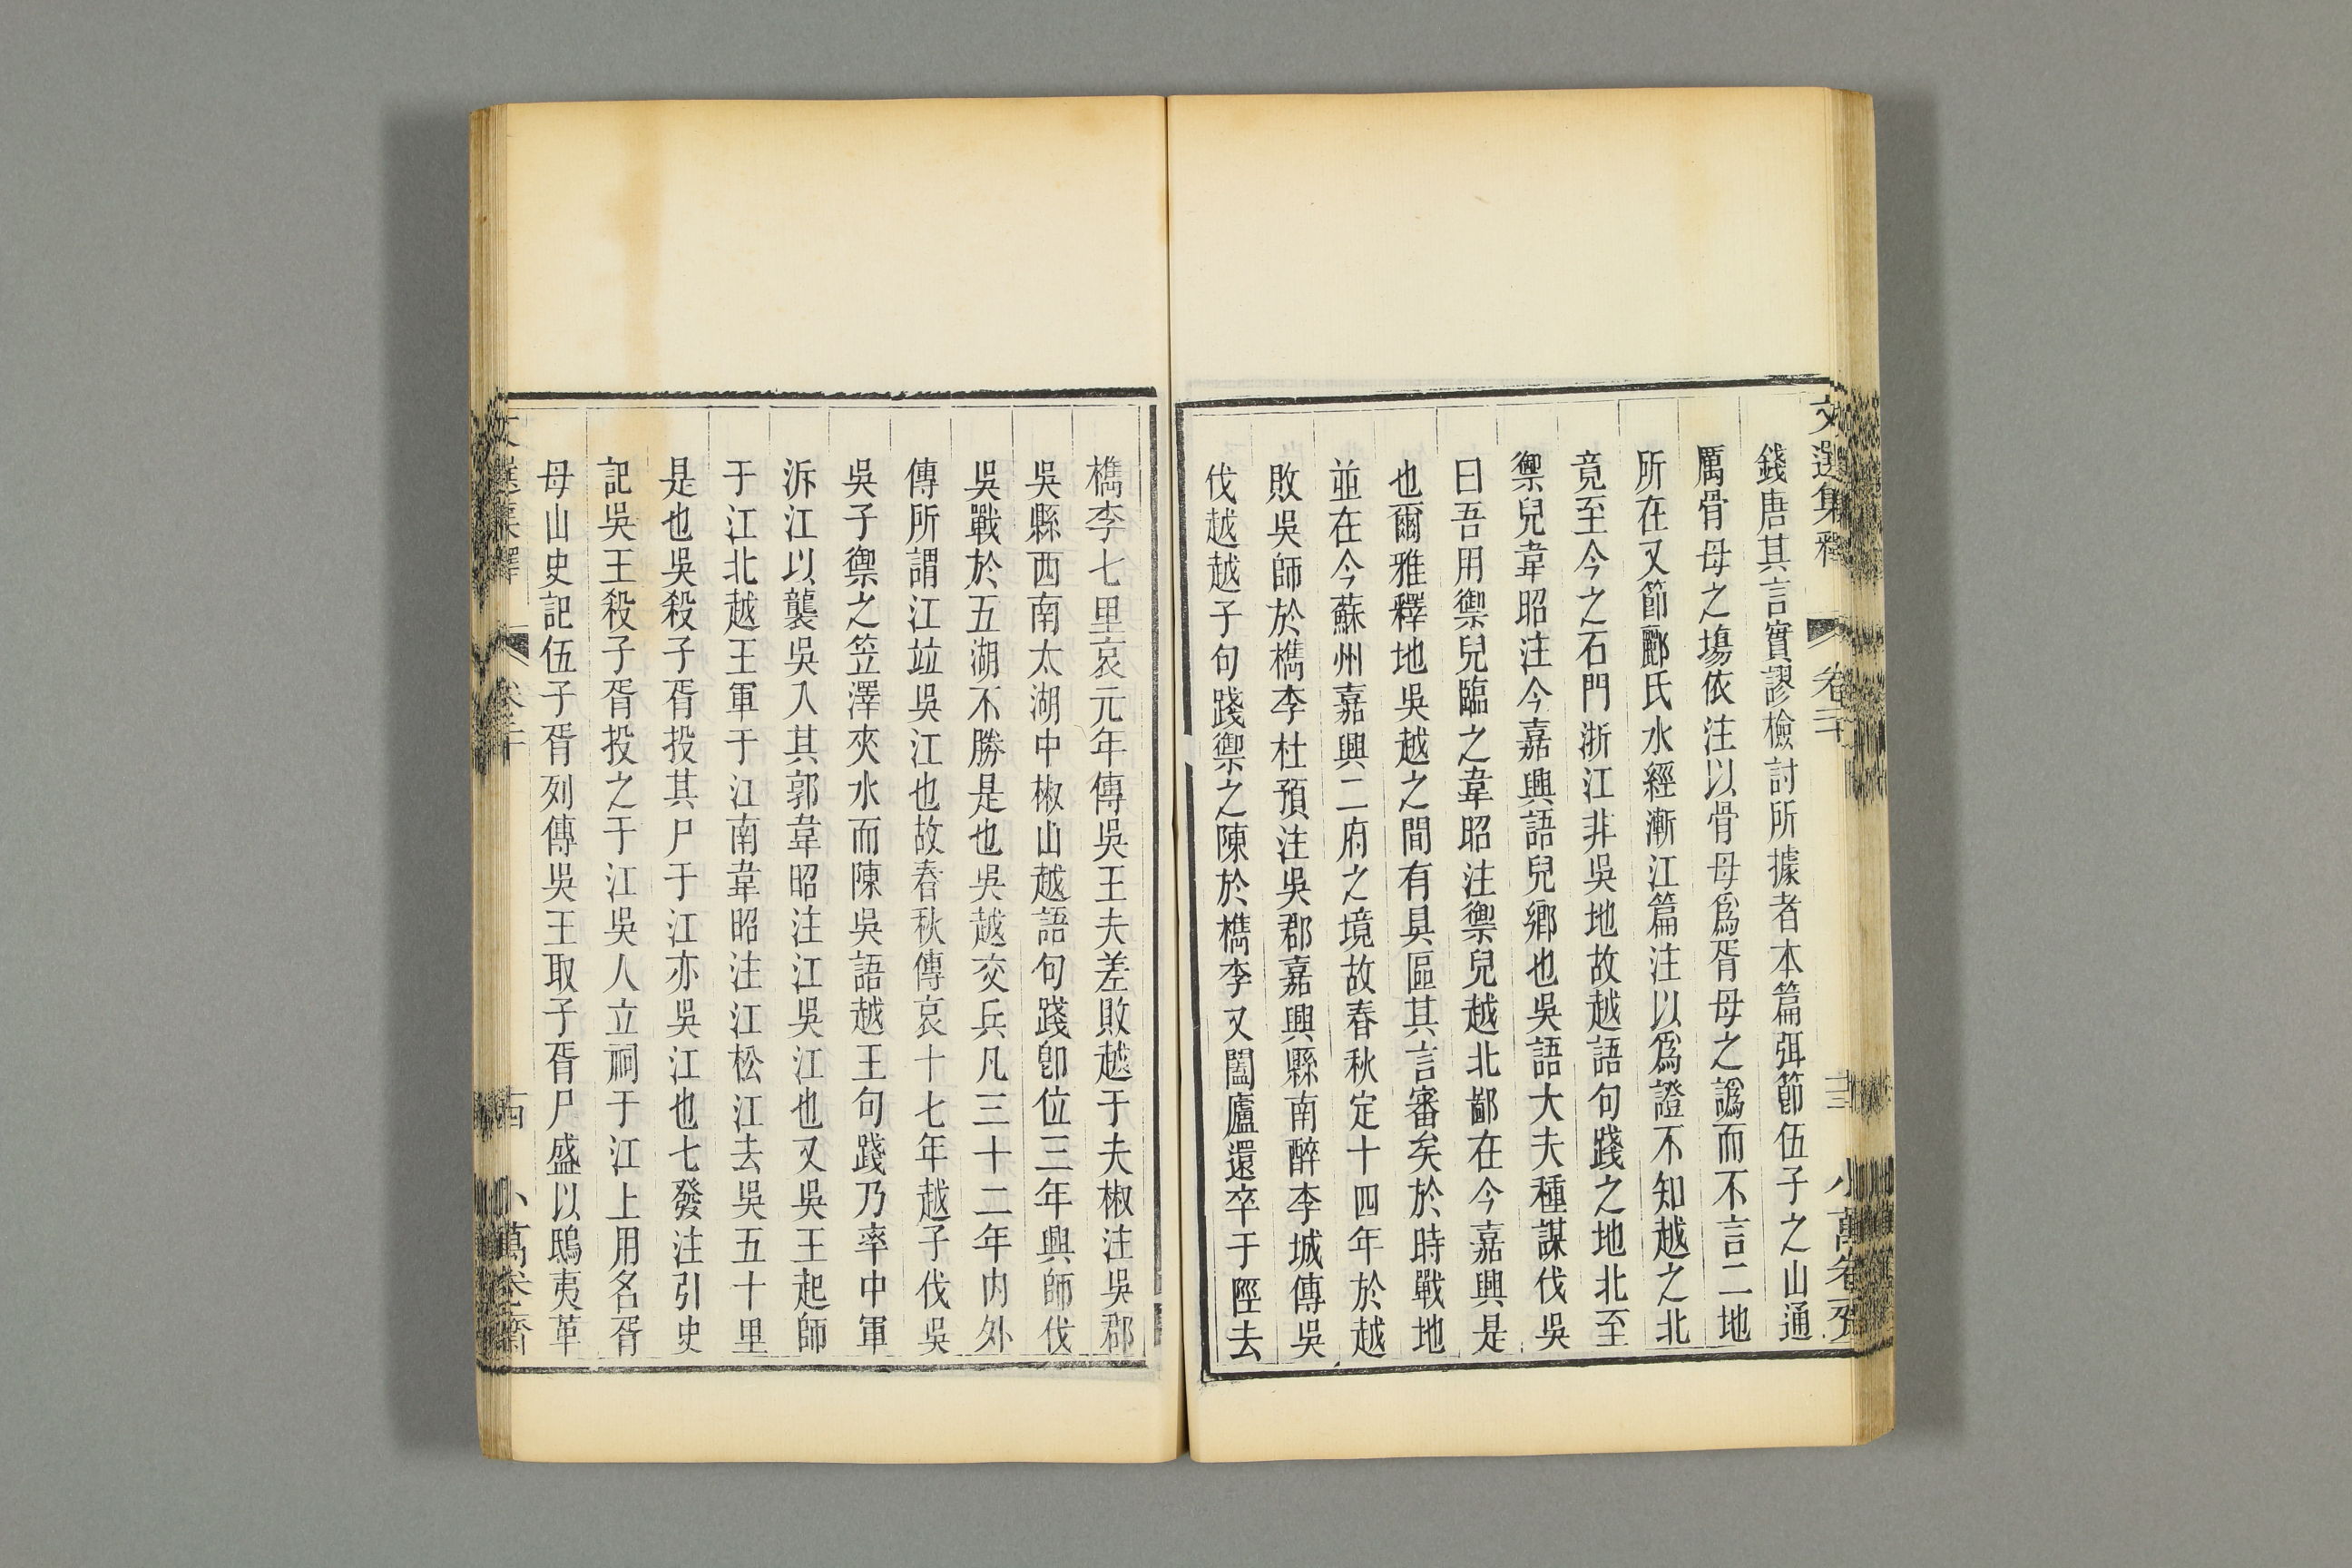 文選集釋 卷二十 十三 小萬卷齋
錢唐其言實謬檢討所據者本篇弭節伍子之山通
厲骨母之塲依注以骨母爲胥母之譌而不言二地
所在又節酈氏水經漸江篇注以爲證不知越之北
竟至今之石門浙江非吳地故越語句踐之地北至
禦兒韋昭注今嘉興語兒鄉也吳語大夫種謀伐吳
曰吾用禦兒臨之韋昭注禦兒越北鄙在今嘉興是
也爾雅釋地吳越之間有具區其言審矣於時戰地
並在今蘇州嘉興二府之境故春秋定十四年於越
敗吳師於檇李杜預注吳郡嘉興縣南醉李城傳吳
伐越越子句踐禦之陳於檇李又闔廬還卒于陘去
檇李七里哀元年傳吳王夫差敗越于夫椒注吳郡
吳縣西南太湖中椒山越語句踐卽位三年興師伐
吳戰於五湖不勝是也吳越交兵凡三十二年內外
傳所謂江竝吳江也故春秋傳哀十七年越子伐吳
吳子禦之笠澤夾水而陳吳語越王句踐乃率中軍
泝江以襲吳入其郭韋昭注江吳江也又吳王起師
于江北越王軍于江南韋昭注江松江去吳五十里
是也吳殺子胥投其尸于江亦吳江也七發注引史
記吳王殺子胥投之于江吳人立祠于江上用名胥
母山史記伍子胥列傳吳王取子胥尸盛以鴟夷革
文選集釋 卷二十 十四 小萬卷齋